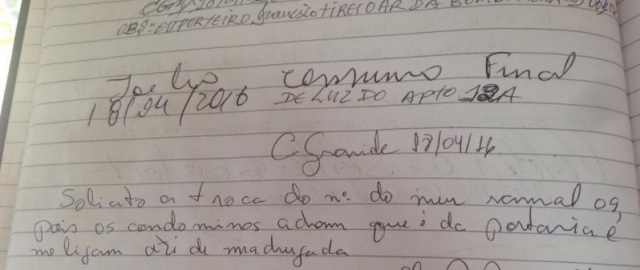 OBS: EU PORTEIRO, TIREI O AR DA
consumo Final
18/04/2016 DE LUZ DO APTO 12A
C Grande 18/04/16
Solicito a troca do nº do meu ramal 09,
pois os condominos acham que é da portaria e
me ligam até de madrugada